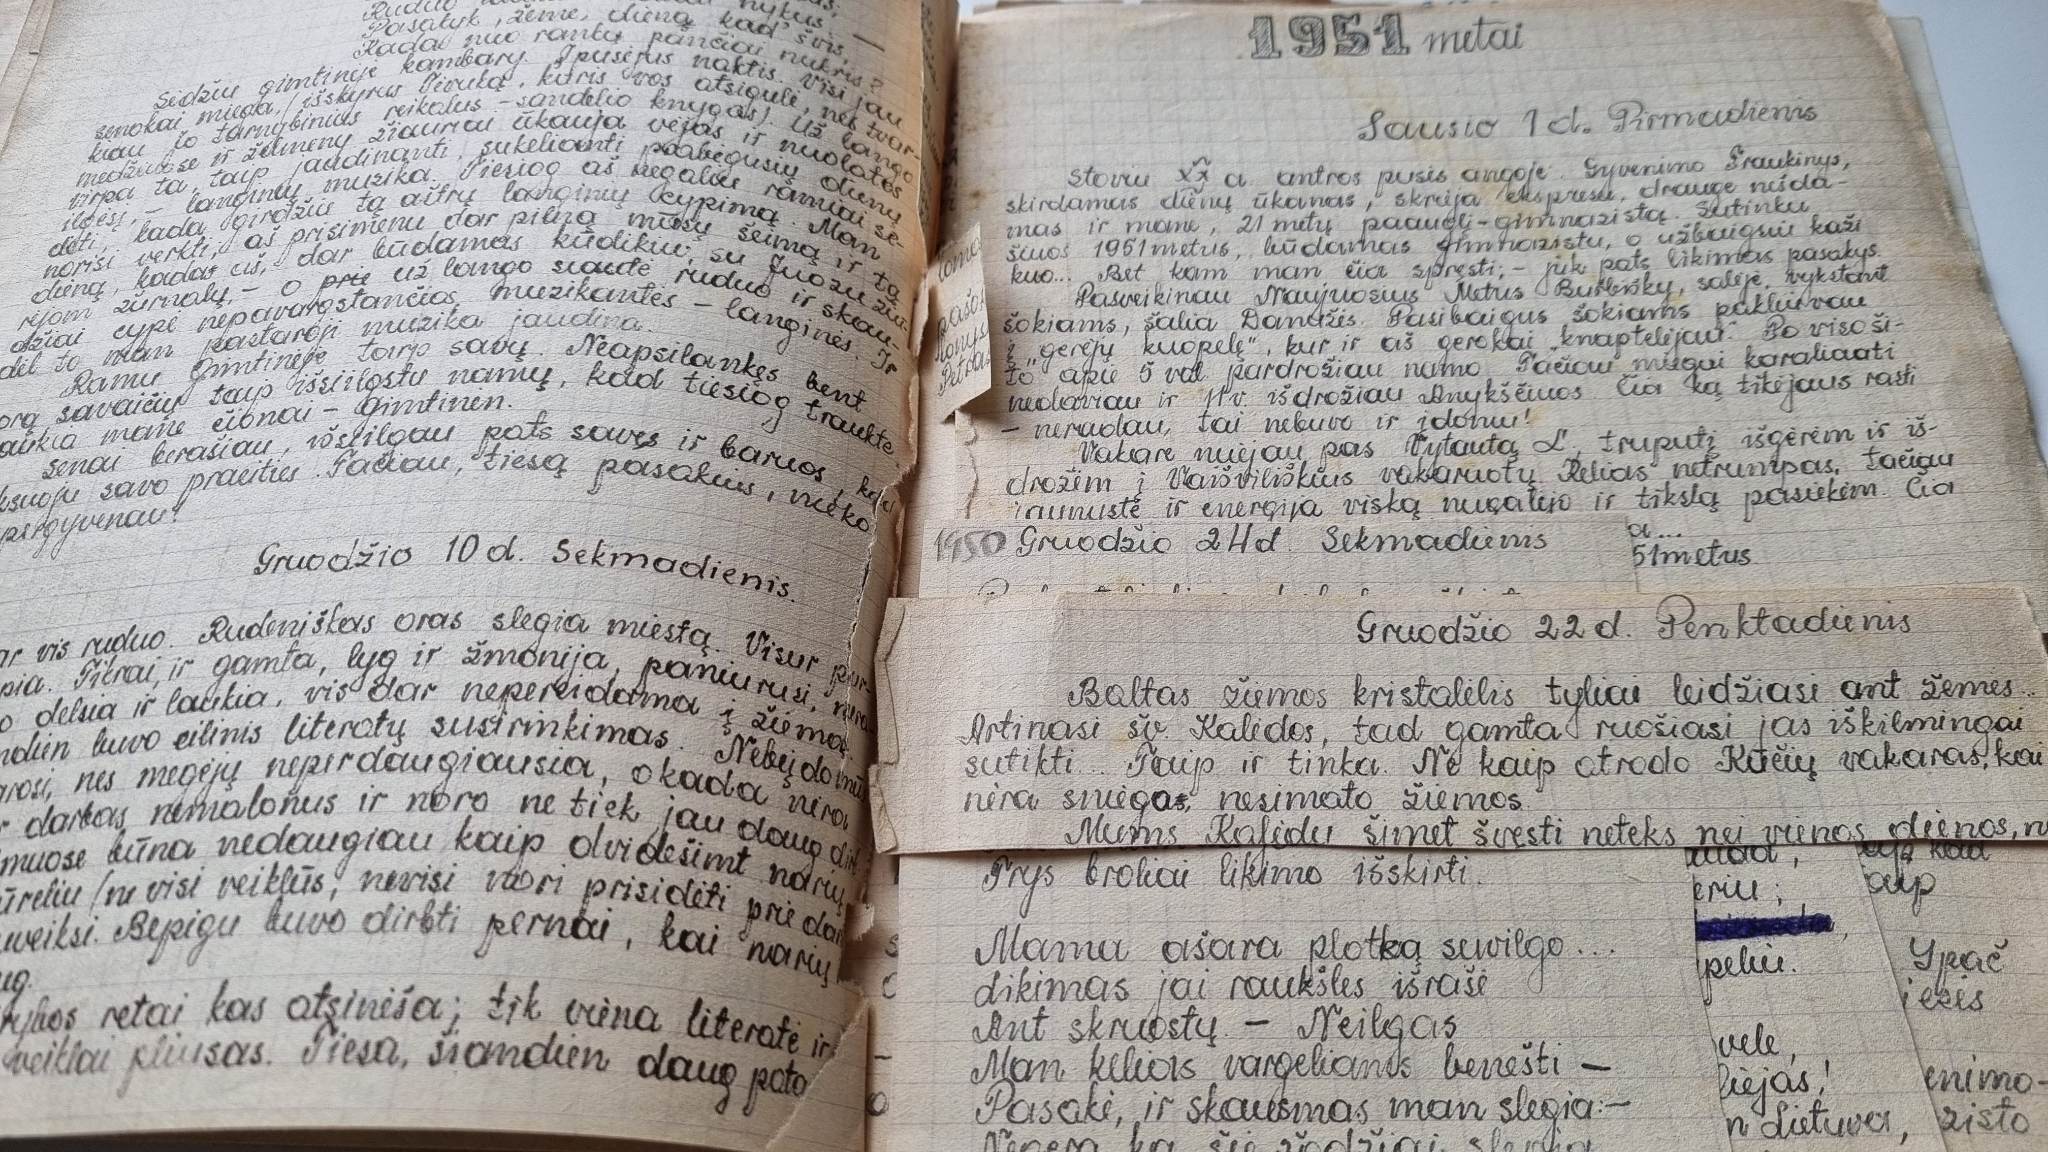 Pasakyk, žeme, dieną kad švis, —
Kada nuo rankų pančiai nukris?
Sėdžiu gimtinėje kambary. Įpusėjus naktis. Visi jau
senokai miega, (išskyrus Tėvuką, kuris vos atsigulė, nes tvar-
kiau jo tarnybinius reikalus – sandėlio knygas). Už lango
medžiuose ir želmenų žiauriai ūkauja vėjas ir nuolatos
virpa ta, taip jaudinanti, sukelianti prabėgusių dienų
ilgesį, – langinių muzika. Tiesiog aš negaliu ramiai sė-
dėti, kada girdžiu tą aitrų langinių cypimą. Man
norisi verkti; aš prisimenu dar pilną mūsų šeimą ir tą
dieną, kadas aš, dar būdamas kūdikiu, su Juozu žiū-
rėjom žurnalų, – o prie už lango siautė ruduo ir skau-
džiai cypė nepavargstančios muzikantės – langinės. Ir
dėl to man pastaroji muzika jaudina.
Ramu gimtinėje tarp savų. Neapsilankęs bent
porą savaičių taip išsiilgstu namų, kad tiesiog traukte
traukia mane čionai – gimtinėn.
Senai berašiau, išsiilgau pats savęs ir baruos
savo praeities. Tačiau, tiesą pasakius, nieko
pergyvenau!
Gruodžio 10 d. Sekmadienis.
vis ruduo. Rudeniškas oras slegia miestą. Visur pur-
Tikrai, ir gamta, lyg ir žmonija, paniurusi,
delsia ir laukia, vis dar nepereidama į žiemą.
buvo eilinis literatų susirinkimas. Nebįdomūs
nes mėgėjų neperdaugiausia, o kada nėra
darbas nemalonus ir noro ne tiek jau daug
būna nedaugiau kaip dvidešimt narių,
būreliu (ne visi veiklūs, nevisi nori prisidėti prie dar
Bepigu buvo dirbti pernai, kai narių
retai kas atsinėša; tik viena literatė ir
veiklai pliusas. Tiesa, šiandien daug
Petras
1951 metai
Sausio 1 d. Pirmadienis
Stoviu XX a. antros pusės angoje. Gyvenimo Traukinys,
skirdamas dienų ūkanas, skrieja ekspresu, drauge nešda-
mas ir mane, 21 metų paauglį-gimnazistą. Sutinku
šiuos 1951 metus, būdamas gimnazistu, o užbaigsiu kaži
kuo... Bet kam man čia spręsti, – juk pats likimas pasakys.
Pasveikinau Naujuosius Metus Burbiškų, salėje, vykstant
šokiams, šalia Danutės. Pasibaigus šokiams pakliuvau
į „gerėjų kuopelę“, kur ir aš gerokai „knaptelėjau“. Po viso ši-
to apie 5 val. pardrožiau namo. Tačiau miegai karaliauti
nedaviau ir 11 v. išdrožiau Anykščiuos. Čia ką tikėjaus rasti
– neradau, tai nebuvo ir įdomu!
Vakare nuėjau pas Vytautą L., truputį išgėrėm ir iš-
drožėm į Vaišviliškius vakaruotų. Kelias netrumpas, tačiau
jaunystė ir energija viską nugalėjo ir tikslą pasiekėm. Čia
1950 Gruodžio 24 d. Sekmadienis
a...
51 metus
Gruodžio 22 d. Penktadienis
Baltas žiemos kristalėlis tyliai leidžiasi ant žemės...
Artinasi šv. Kalėdos, tad gamta ruošiasi jas iškilmingai
sutikti... Taip ir tinka. Ne kaip atrodo Kūčių vakaras, kai
nėra sniego, nesimato žiemos.
Mums Kalėdų šimet švęsti neteks nei vienos dienos,
Trys broliai likimo išskirti.
Mama ašara plotką suvilgo...
Likimas jai raukšlės išrašė
Ant skruostų. – Neilgas
Man kelias vargeliams benešti —
Pasakė, ir skausmas man slegia: —
kad
eriu; aip
peliu. Ypač
iezės
vele,
liejas! enimo-
n Lietuva, zisto